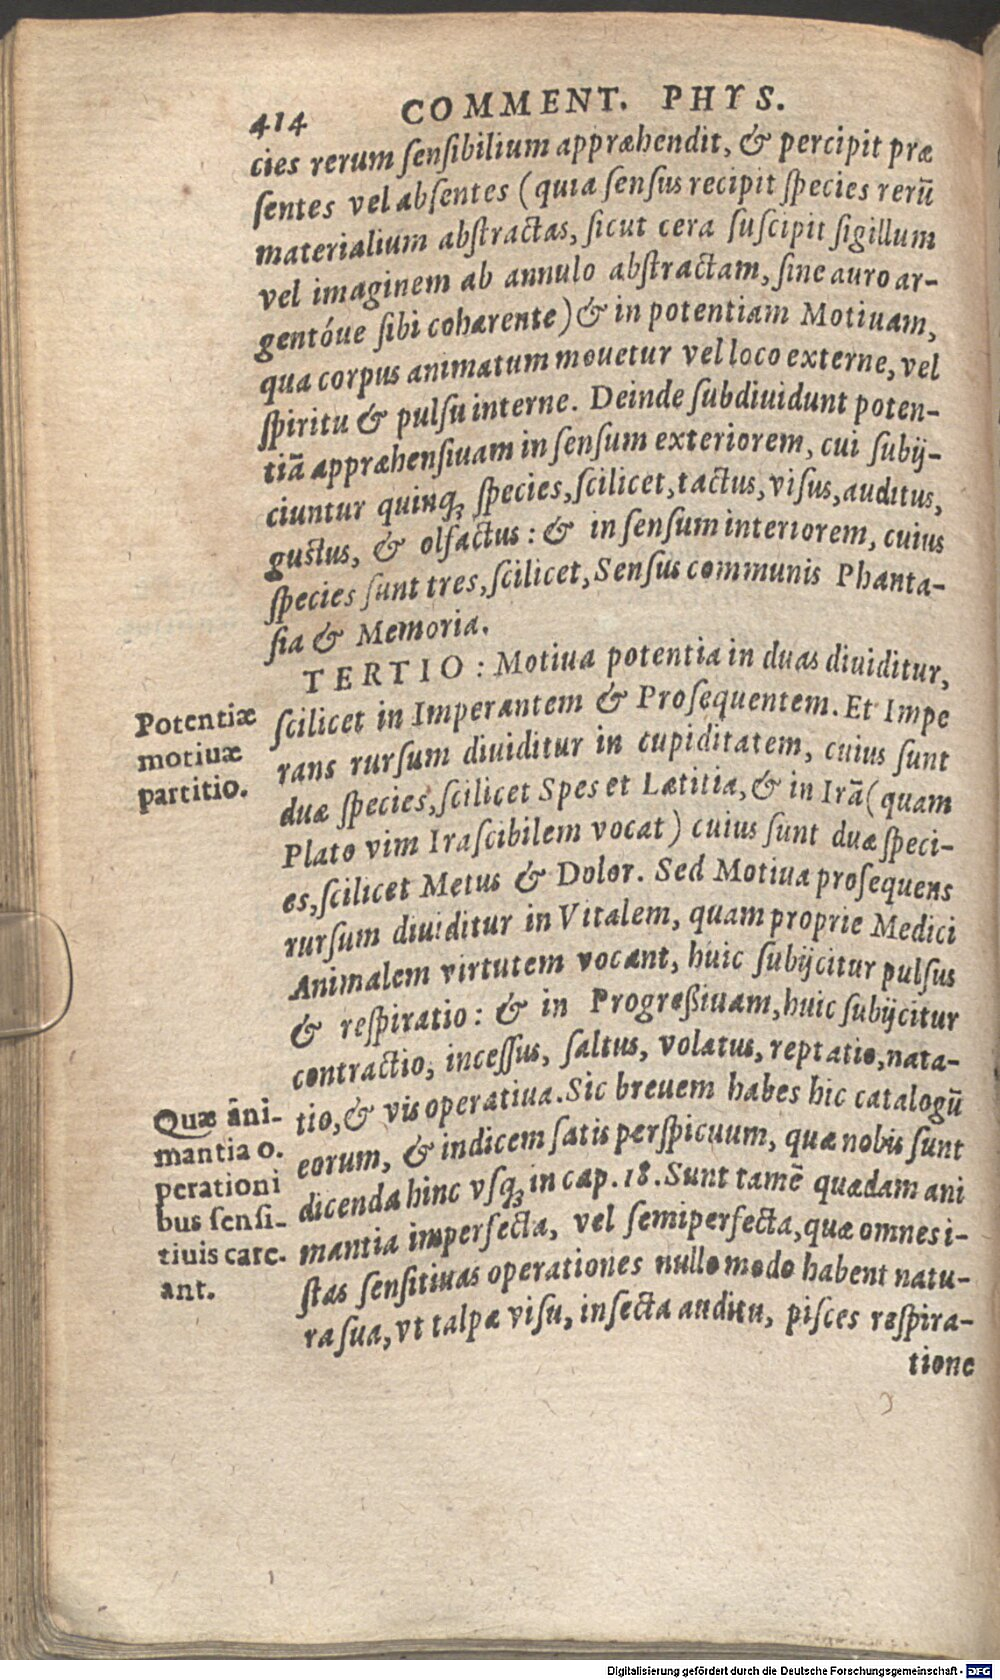 414 COMMENT. PHYS.
cies rerum ſenſibilium appræhendit, & percipit præ
ſentes vel abſentes (quia ſenſus recipit ſpecies rerū
materialium abſtractas, ſicut cera ſuſcipit ſigillum
vel imaginem ab annulo abſtractam, ſine auro ar-
gentóue ſibi cohærente) & in potentiam Motiuam,
qua corpus animatum mouetur vel loco externe, vel
ſpiritu & pulſu interne. Deinde ſubdiuidunt poten-
tiā appræhenſiuam in ſenſum exteriorem, cui ſubij-
ciuntur quinq, ſpecies, ſcilicet, tactus, viſus, auditus,
guſtus, & olfactus: & in ſenſum interiorem, cuius
ſpecies ſunt tres, ſcilicet, Senſus communis Phanta-
ſia & Memoria.
TERTIO: Motiua potentia in duas diuiditur,
Potentiæ
motiuæ
partitio.
ſcilicet in Imperantem & Proſequentem. Et Impe
rans rurſum diuiditur in cupiditatem, cuius ſunt
duæ ſpecies, ſcilicet Spes et Lætitia, & in Irā (quam
Plato vim Iraſcibilem vocat) cuius ſunt duæ ſpeci-
es, ſcilicet Metus & Dolor. Sed Motiua proſequens
rurſum diuiditur in Vitalem, quam proprie Medici
Animalem virtutem vocant, huic ſubijcitur pulſus
& reſpiratio: & in Progreſſiuam, huic ſubijcitur
contractio, inceſſus, ſaltus, volatus, reptatio, nata-
tio, & vis operatiua. Sic breuem habes hic catalogū
Quæ āni-
mantia o.
perationi
bus ſenſi-
tiuis care-
ant.
eorum, & indicem ſatis perſpicuum, quæ nobis ſunt
dicenda hinc vſq, in cap. 18. Sunt tamē quædam ani
mantia imperfecta, vel ſemiperfecta, quæ omnes i-
ſtas ſenſitiuas operationes nullo modo habent natu-
ra ſua, vt talpæ viſu, inſecta auditu, piſces reſpira-
tione
Digitalisierung gefördert durch die Deutsche Forschungsgemeinschaft - DFG